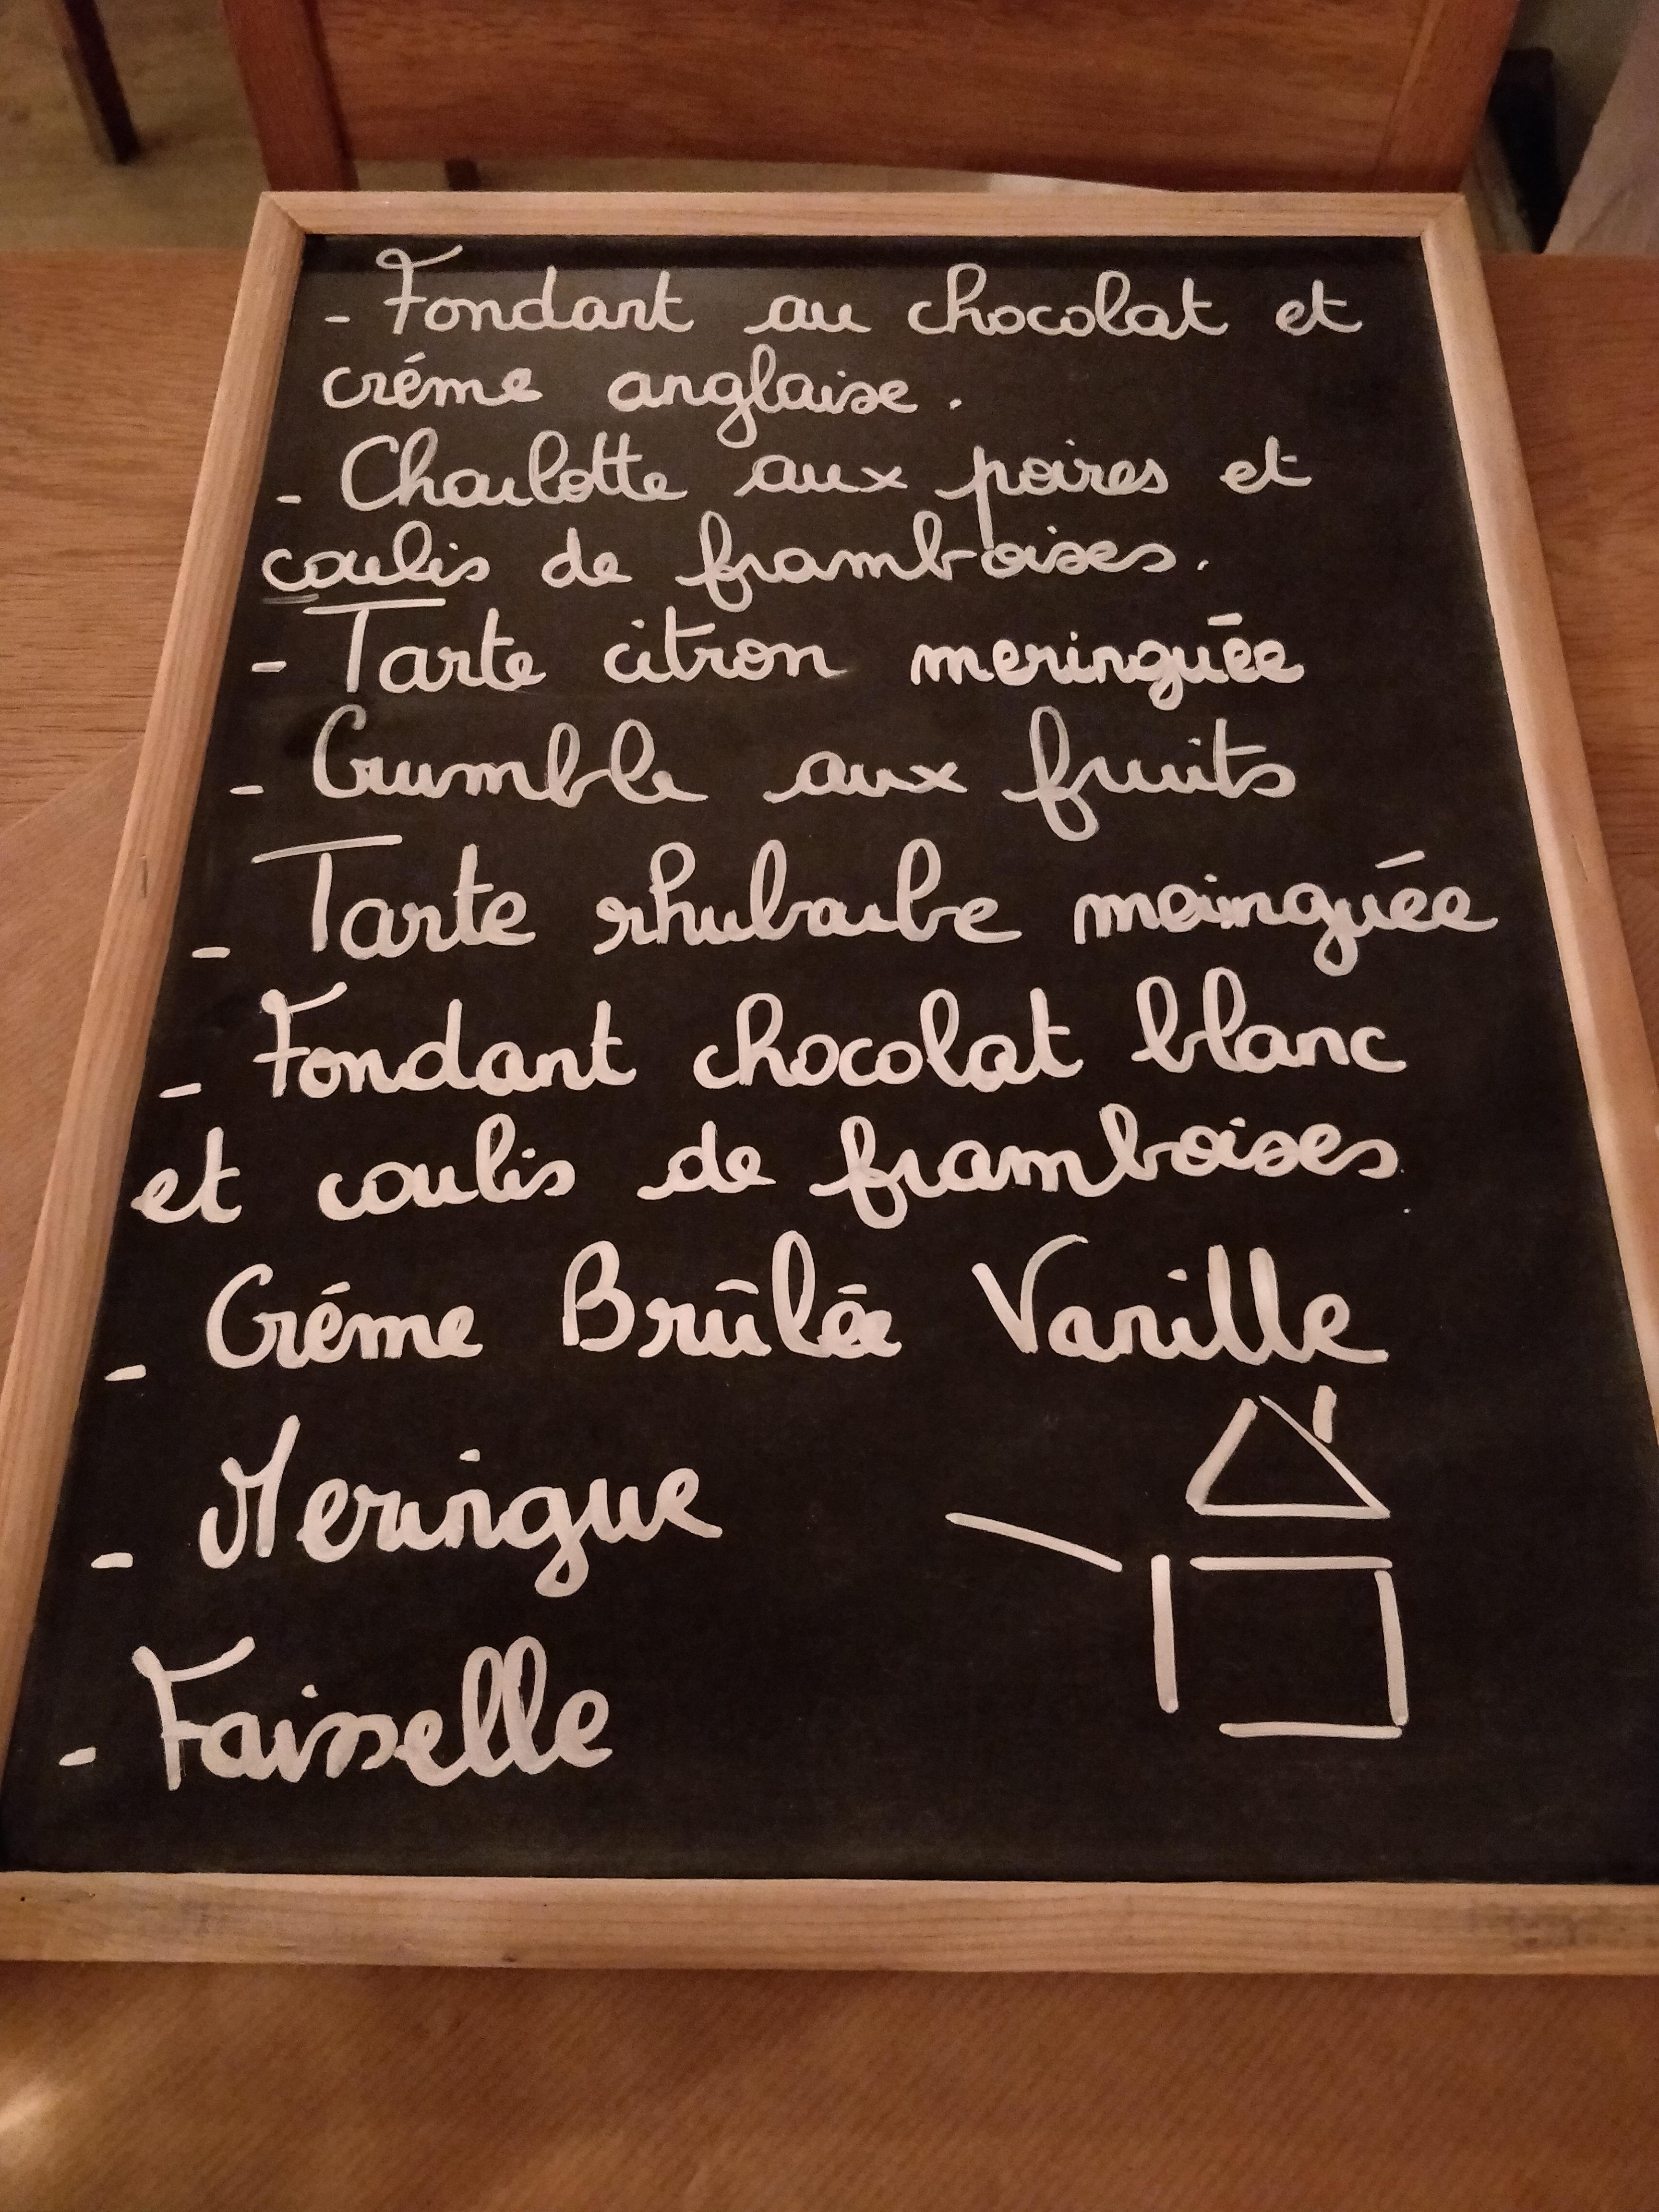 - Fondant au chocolat et
créme anglaise.
- Charlotte aux poires et
coulis de framboises.
- Tarte citron meringuée
- Crumble aux fruits
- Tarte rhubarbe meringuée
- Fondant chocolat blanc
et coulis de framboises.
- Créme Brûlée Vanille
- Meringue
- Faisselle